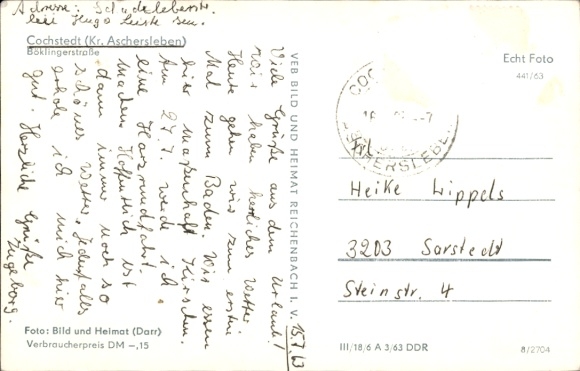 Adresse: Schadeleberstr.
bei Hugo Liste sen.
Cochstedt (Kr. Aschersleben)
Böklingerstraße
Viele Grüße aus dem Urlaub!
Wir haben herrliches Wetter.
Heute gehen wir zum ersten
Mal zum Baden. Wir essen
hier massenhaft Kirschen.
Am 27.7. werde ich
eine Harzrundfahrt
machen. Hoffentlich ist
dann immer noch so
schönes Wetter. Jedenfalls
erhole ich mich hier
gut. Herzliche Grüße
Ingeborg.
Foto: Bild und Heimat (Darr)
Verbraucherpreis DM -,15
VEB BILD UND HEIMAT REICHENBACH I. V.
15.7.63
Echt Foto
441/63
Frl.
Heike Lippels
3203 Sarstedt
Steinstr. 4
III/18/6 A 3/63 DDR
8/2704